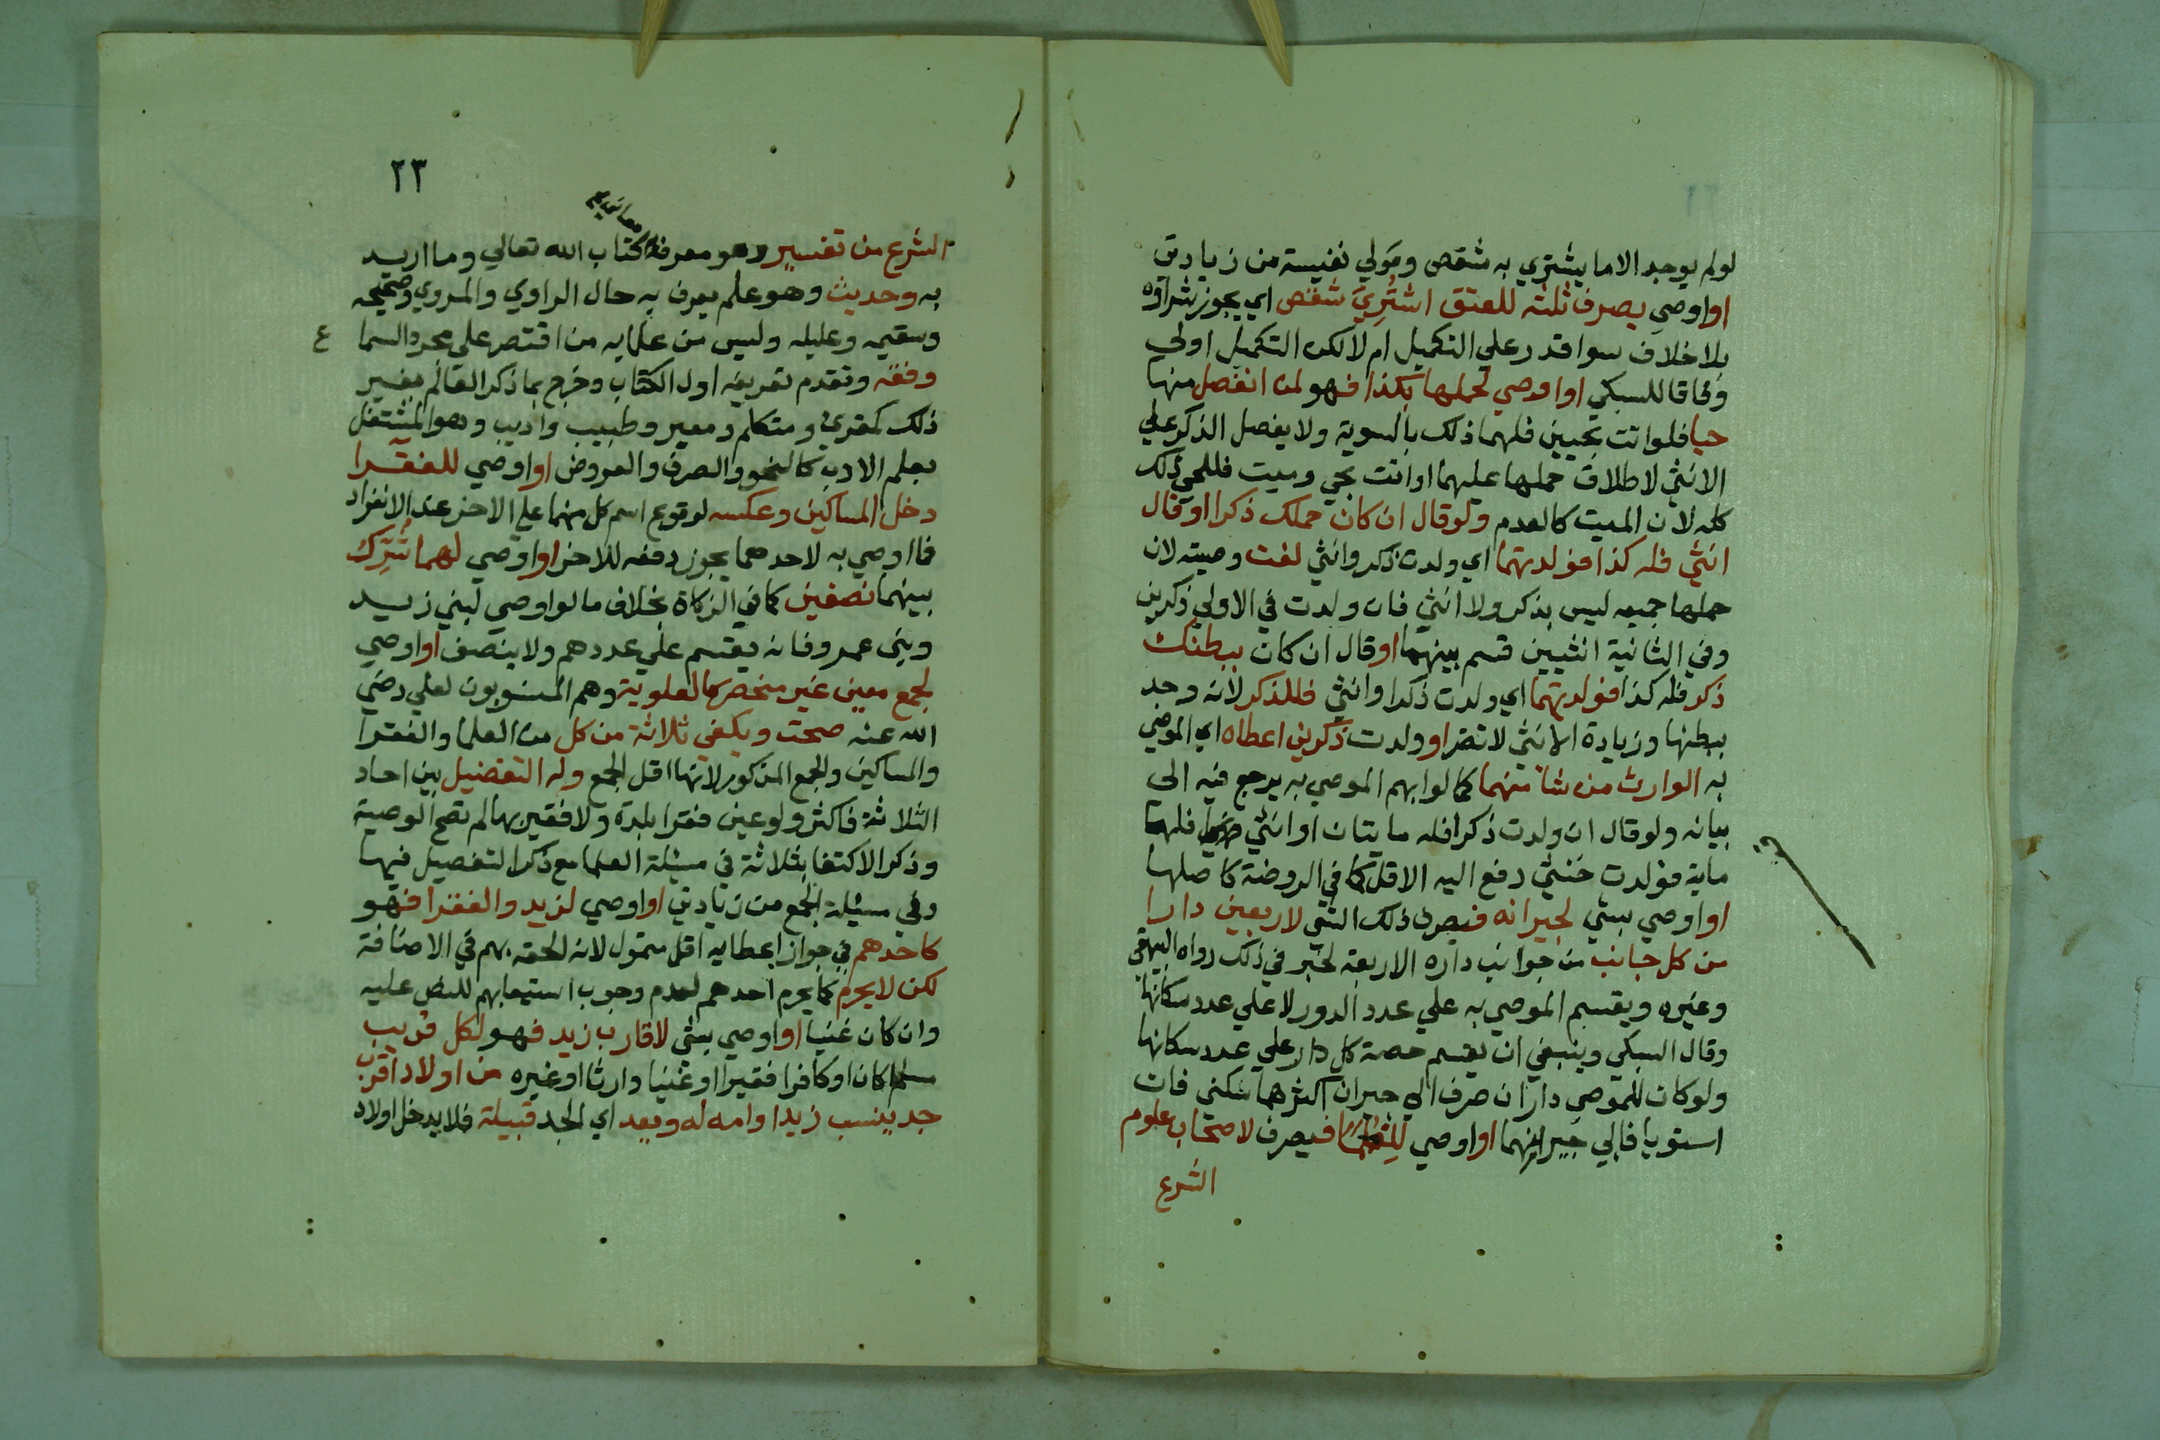 لولم يوجد الا ما يشتري به شقص وقولي نفيسة من زيادتي
او اوصي بصرف ثلثه للعتق اشتُرِيَ شقص اي يجوز شراؤه
بلا خلاف سوا قدر علي التكميل ام لا لكن التكميل اولي
وفاقا للسبكي او اوصي لحملها بكذا فهو لمن انفصل منها
حيا فلو اتت بحيين فلهما ذلك بالسوية ولا يفضل الذكر علي
الانثي لاطلاق حملها عليهما او اتت بحي وميت فللحي ذلك
كله لان الميت كالعدم ولو قال ان كان حملك ذكرا او قال
انثي فله كذا فولدتهما اي ولدت ذكر وانثي لغت وصيته لان
حملها جميعه ليس بذكر ولا انثي فان ولدت في الاولي ذكرين
وفي الثانية انثيين قسم بينهما او قال ان كان ببطنك
ذكر فله كذا فولدتهما اي ولدت ذكرا وانثي فللذكر لانه وجد
ببطنها وزيادة الانثي لا تضر او ولدت ذكرين اعطاه اي الموصي
به الوارث من شا منهما كما لو ابهم الموصي به يرجع فيه الي
بيانه ولو قال ان ولدت ذكرا فله مايتان او انثي فلها
ماية فولدت خنثي دفع اليه الاقل كما في الروضة كاصلها
او اوصي بشي لجيرانه فيصرف ذلك الشي لاربعين دارا
من كل جانب من جوانب داره الاربعة لخبر في ذلك رواه البيهقي
وغيره ويقسم الموصي به علي عدد الدور لا علي عدد سكانها
وقال السبكي وينبغي ان يقسم حصة كل دار علي عدد سكانها
ولو كان للموصي داران صرف الي جيران اكثرهما سكني فان
استويا فالي جيرانهما او اوصي للعلما فيصرف لاصحاب علوم
الشرع
٢٣
معاني
الشرع من تفسير وهو معرفة كتاب الله تعالي وما اريد
به وحديث وهو علم يعرف به حال الراوي والمروي وصحيحه
وسقيمه وعليله وليس من علمايه من اقتصر علي مجرد السما
ع
وفقه وتقدم تعريفه اول الكتاب وخرج بما ذكر العالم بغير
ذلك كمقري ومتكلم ومعبر وطبيب واديب وهو المشتغل
بعلم الادب كالنحو والصرف والعروض او اوصي للفقرا
دخل المساكين وعكسه لوقوع اسم كل منهما علي الاخر عند الانفراد
فما اوصي به لاحدهما يجوز دفعه للاخر او اوصي لهما شُرِّك
بينهما نصفين كما في الزكاة بخلاف ما لو اوصي لبني زيد
وبني عمرو فانه يقسم علي عددهم ولا ينصف او اوصي
لجمع معين غير منحصر كالعلوية وهم المنسوبون لعلي رضي
الله عنه صحت ويكفي ثلاثة من كل من العلما والفقرا
والمساكين والجمع المذكور لانها اقل الجمع وله التفضيل بين احاد
الثلاثة فاكثر ولو عين فقرا بلدة ولا فقير بها لم تصح الوصية
وذكر الاكتفا بثلاثة في مسئلة العلما مع ذكر التفضيل فيها
وفي مسئلة الجمع من زيادتي او اوصي لزيد والفقرا فهو
كاحدهم في جواز اعطايه اقل متمول لانه الحقه بهم في الاضافة
لكن لا يحرم كما يحرم احدهم لعدم وجوب استيعابهم للنص عليه
وان كان غنيا او اوصي بشي لاقارب زيد فهو لكل قريب
مسلما كان او كافرا فقيرا او غنيا وارثا او غيره من اولاد اقرب
جد ينسب زيد او امه له ويعد اي الجد قبيلة فلا يدخل اولاد